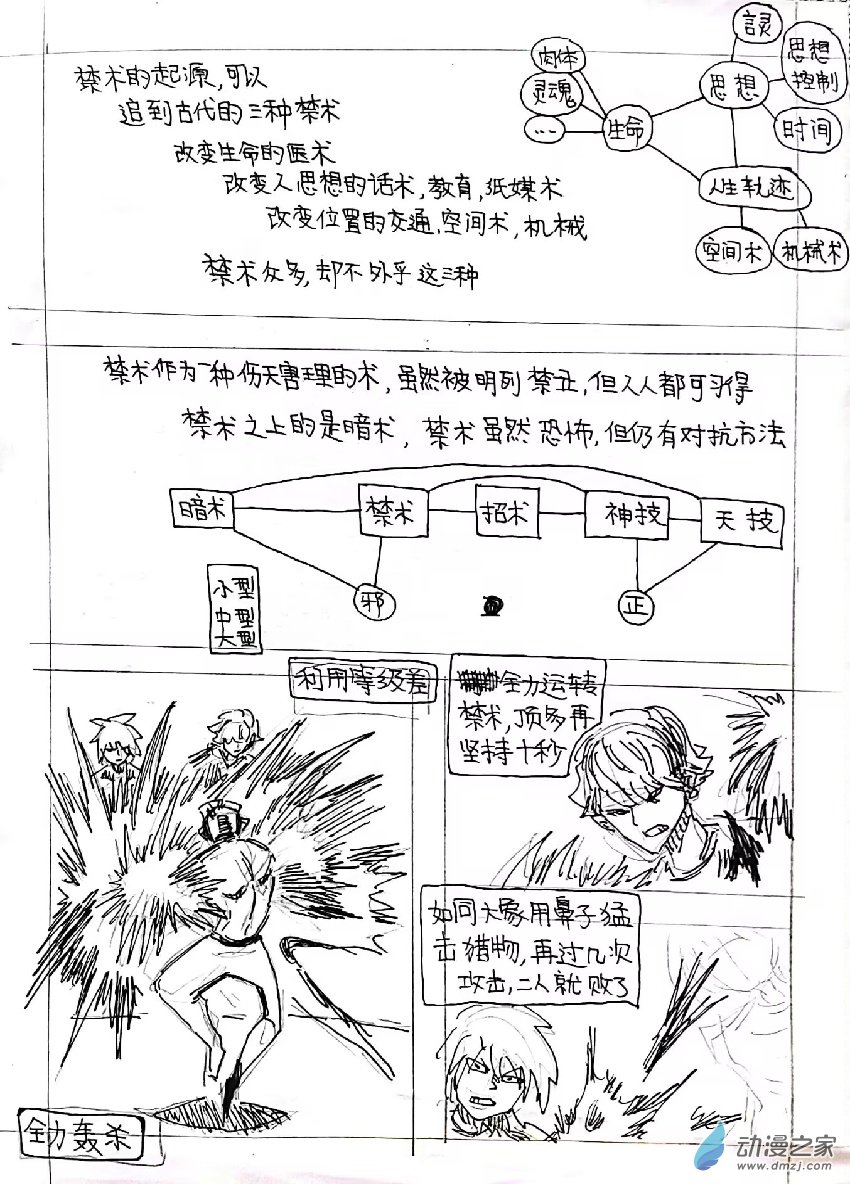 禁术的起源,可以
追到古代的三种禁术
改变生命的医术
改变人思想的话术,教育,纸媒术
改变位置的交通,空间术,机械
禁术众多,却不外乎这三种
肉体
灵魂
...
生命
思想
言灵
思想
控制
时间
人生轨迹
空间术
机械术
禁术作为一种伤天害理的术,虽然被明列禁止,但人人都可习得
禁术之上的是暗术,禁术虽然恐怖,但仍有对抗方法
暗术
禁术
招术
神技
天技
邪
正
小型
中型
大型
利用等级差
全力轰杀
全力运转
禁术,顶多再
坚持十秒
如同大象用鼻子猛
击猎物,再过几次
攻击,二人就败了
动漫之家
www.dmzj.com